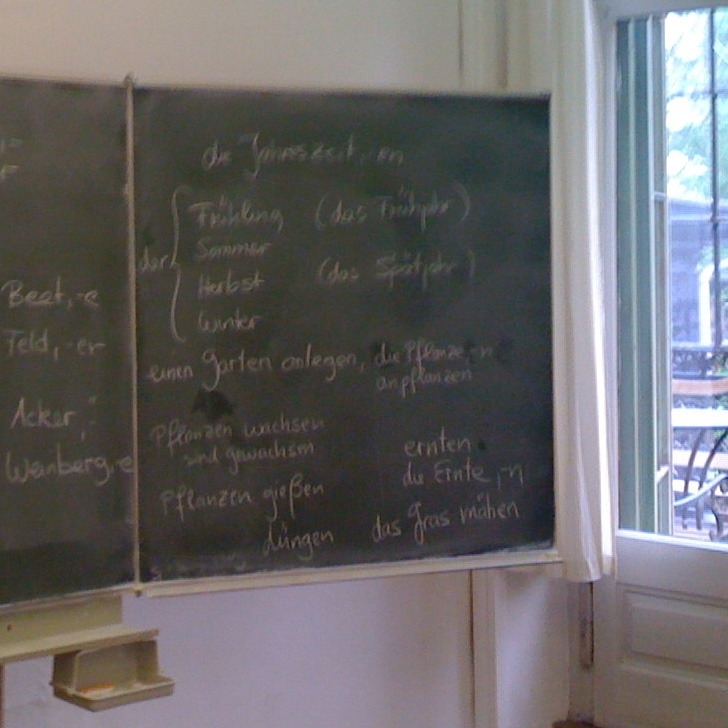 Beet, -e
Feld, -er
Acker, ¨-
Weinberg, -e
die Jahreszeit, -en
der
Frühling (das Frühjahr)
Sommer
Herbst (das Spätjahr)
Winter
einen Garten anlegen, die Pflanze, -n
anpflanzen
Pflanzen wachsen
sind gewachsen
ernten
die Ernte, -n
Pflanzen gießen
düngen
das Gras mähen